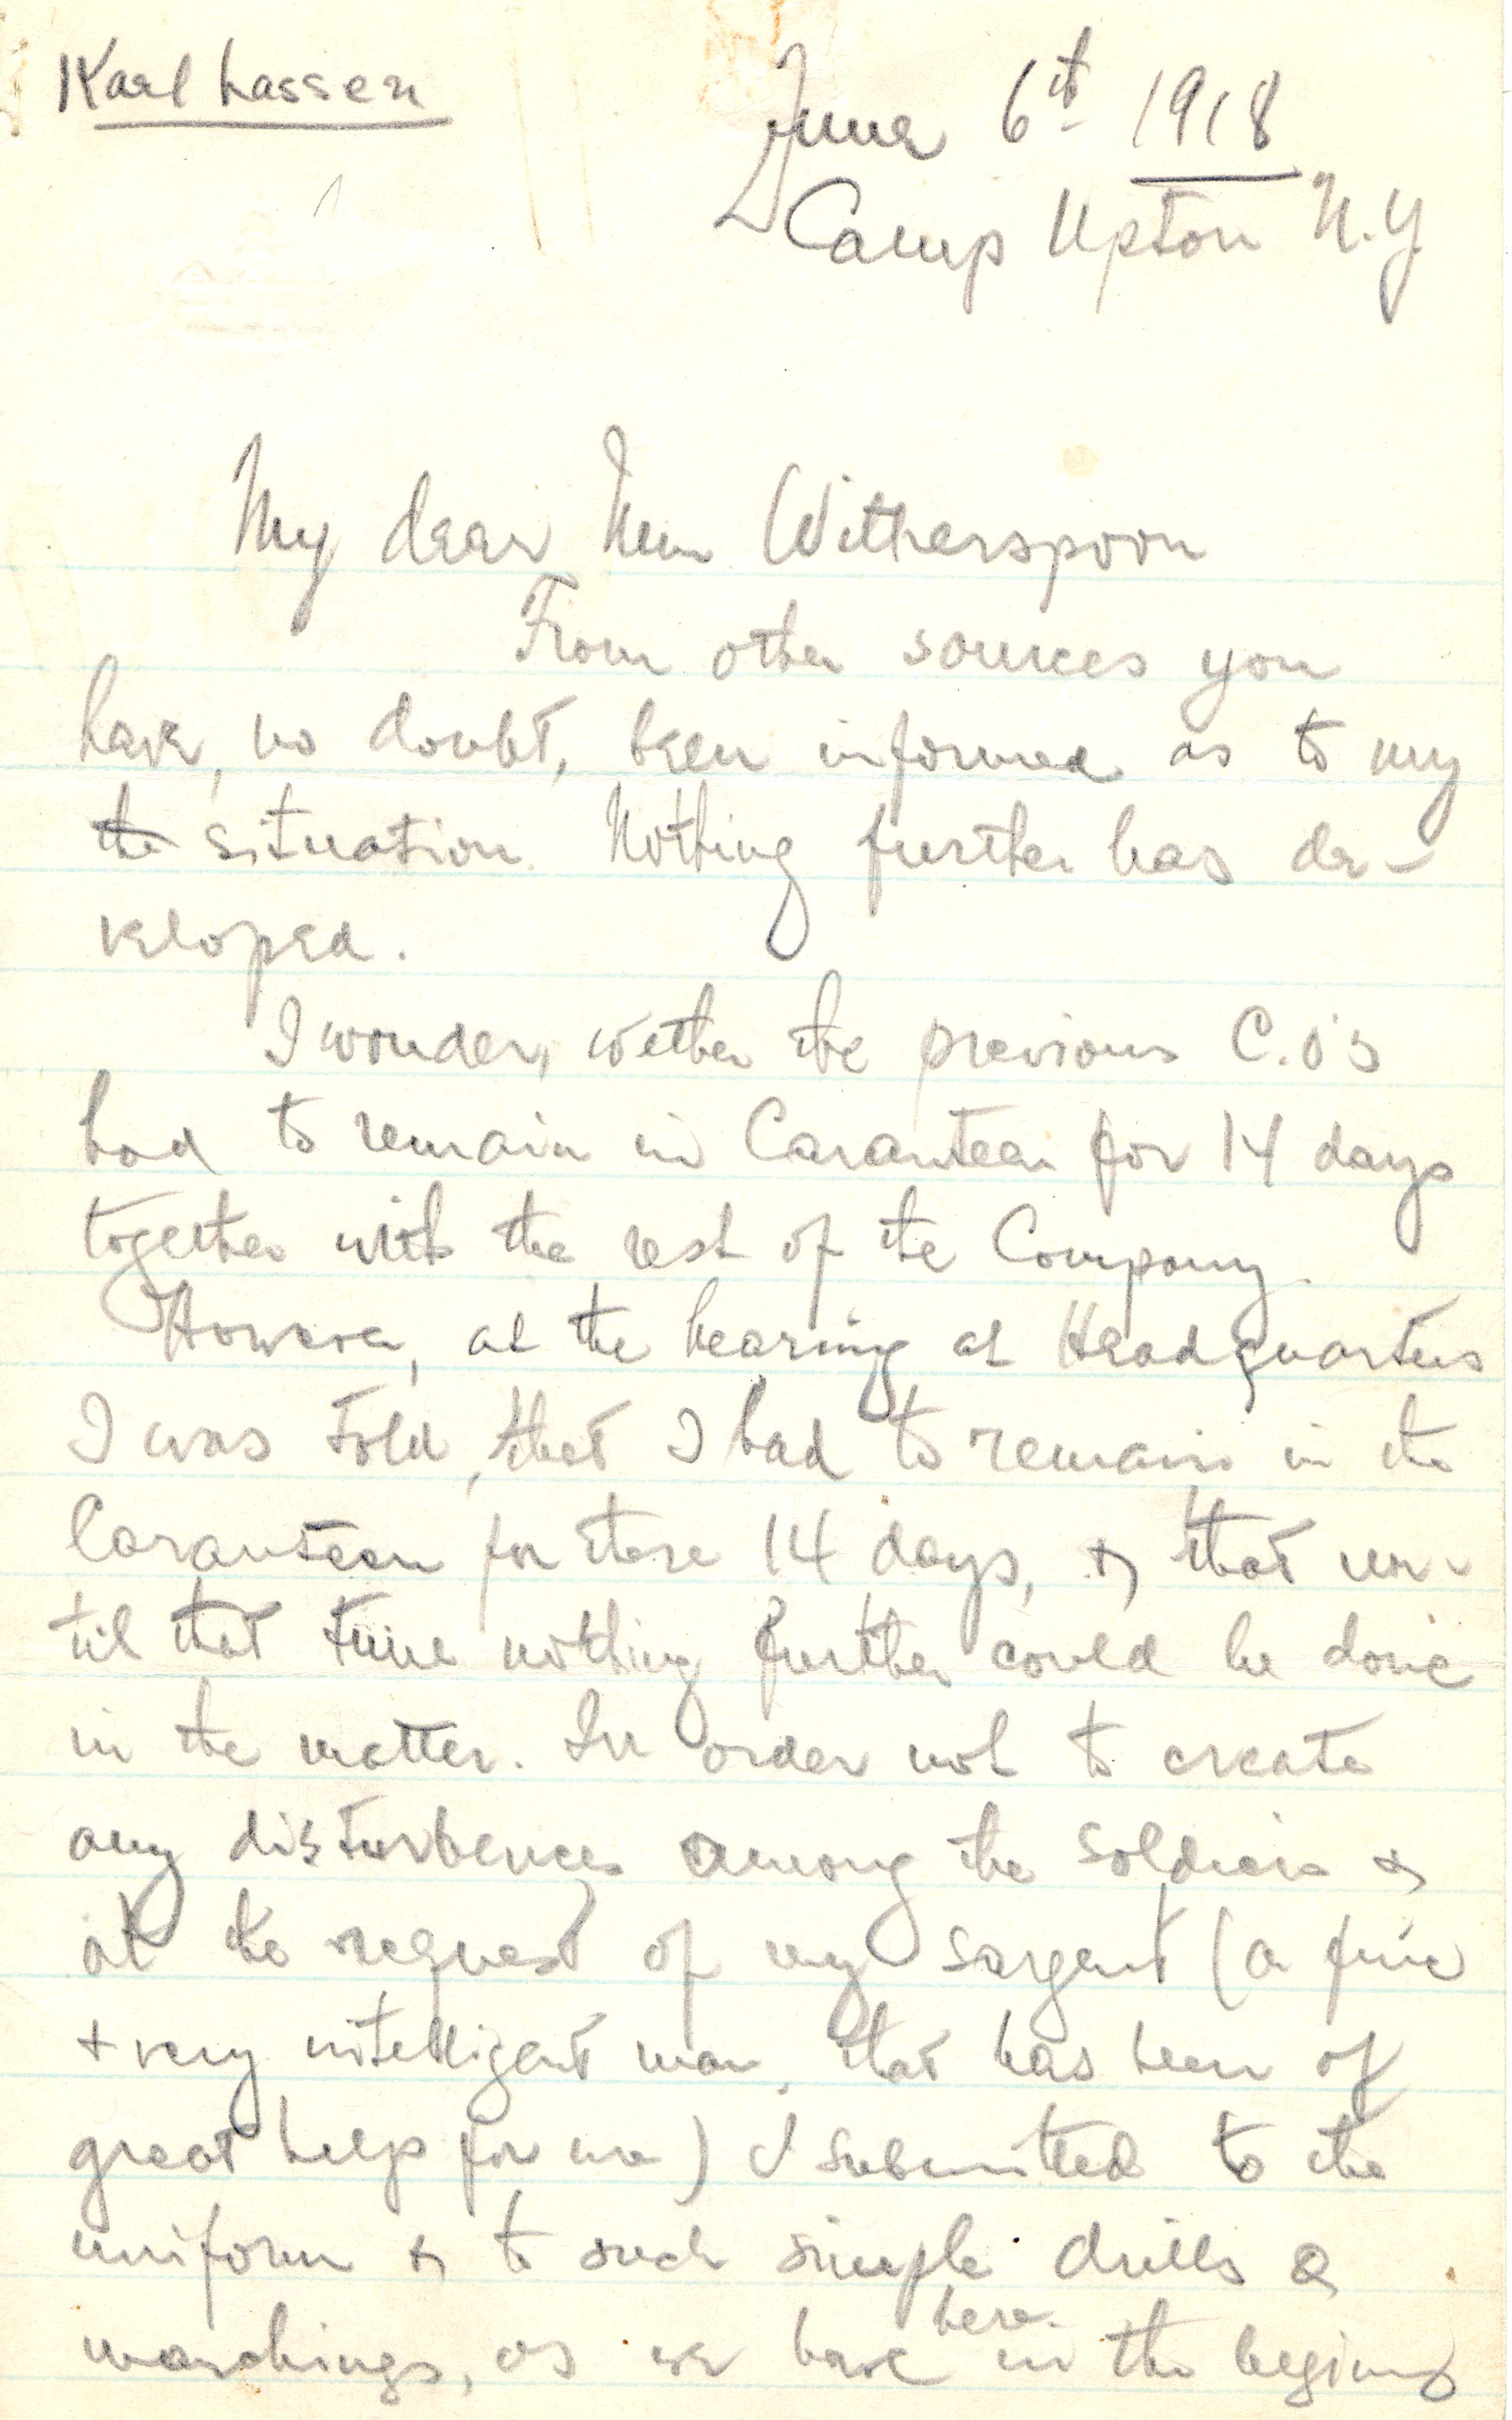 Karl Lassen
June 6th 1918
Camp Upton N.Y.
My dear Witherspoon
From other sources you
have, no doubt, been informed as to my
the situation. Nothing further has de-
veloped.
I wonder, wether the previous C.O's
had to remain in Caranteen for 14 days
together with the rest of the Company.
However, at the hearing at Headquarters
I was told, that I had to remain in the
Caranteen for these 14 days, & that un-
til that time nothing further could be done
in the matter. In order not to create
any disturbences among the soldiers &
at the request of my sargent (a fine
+ very intelligent man, that has been of
great help for me) I submitted to the
uniform & to such simple drills &
here
marchings, as we have in the begining